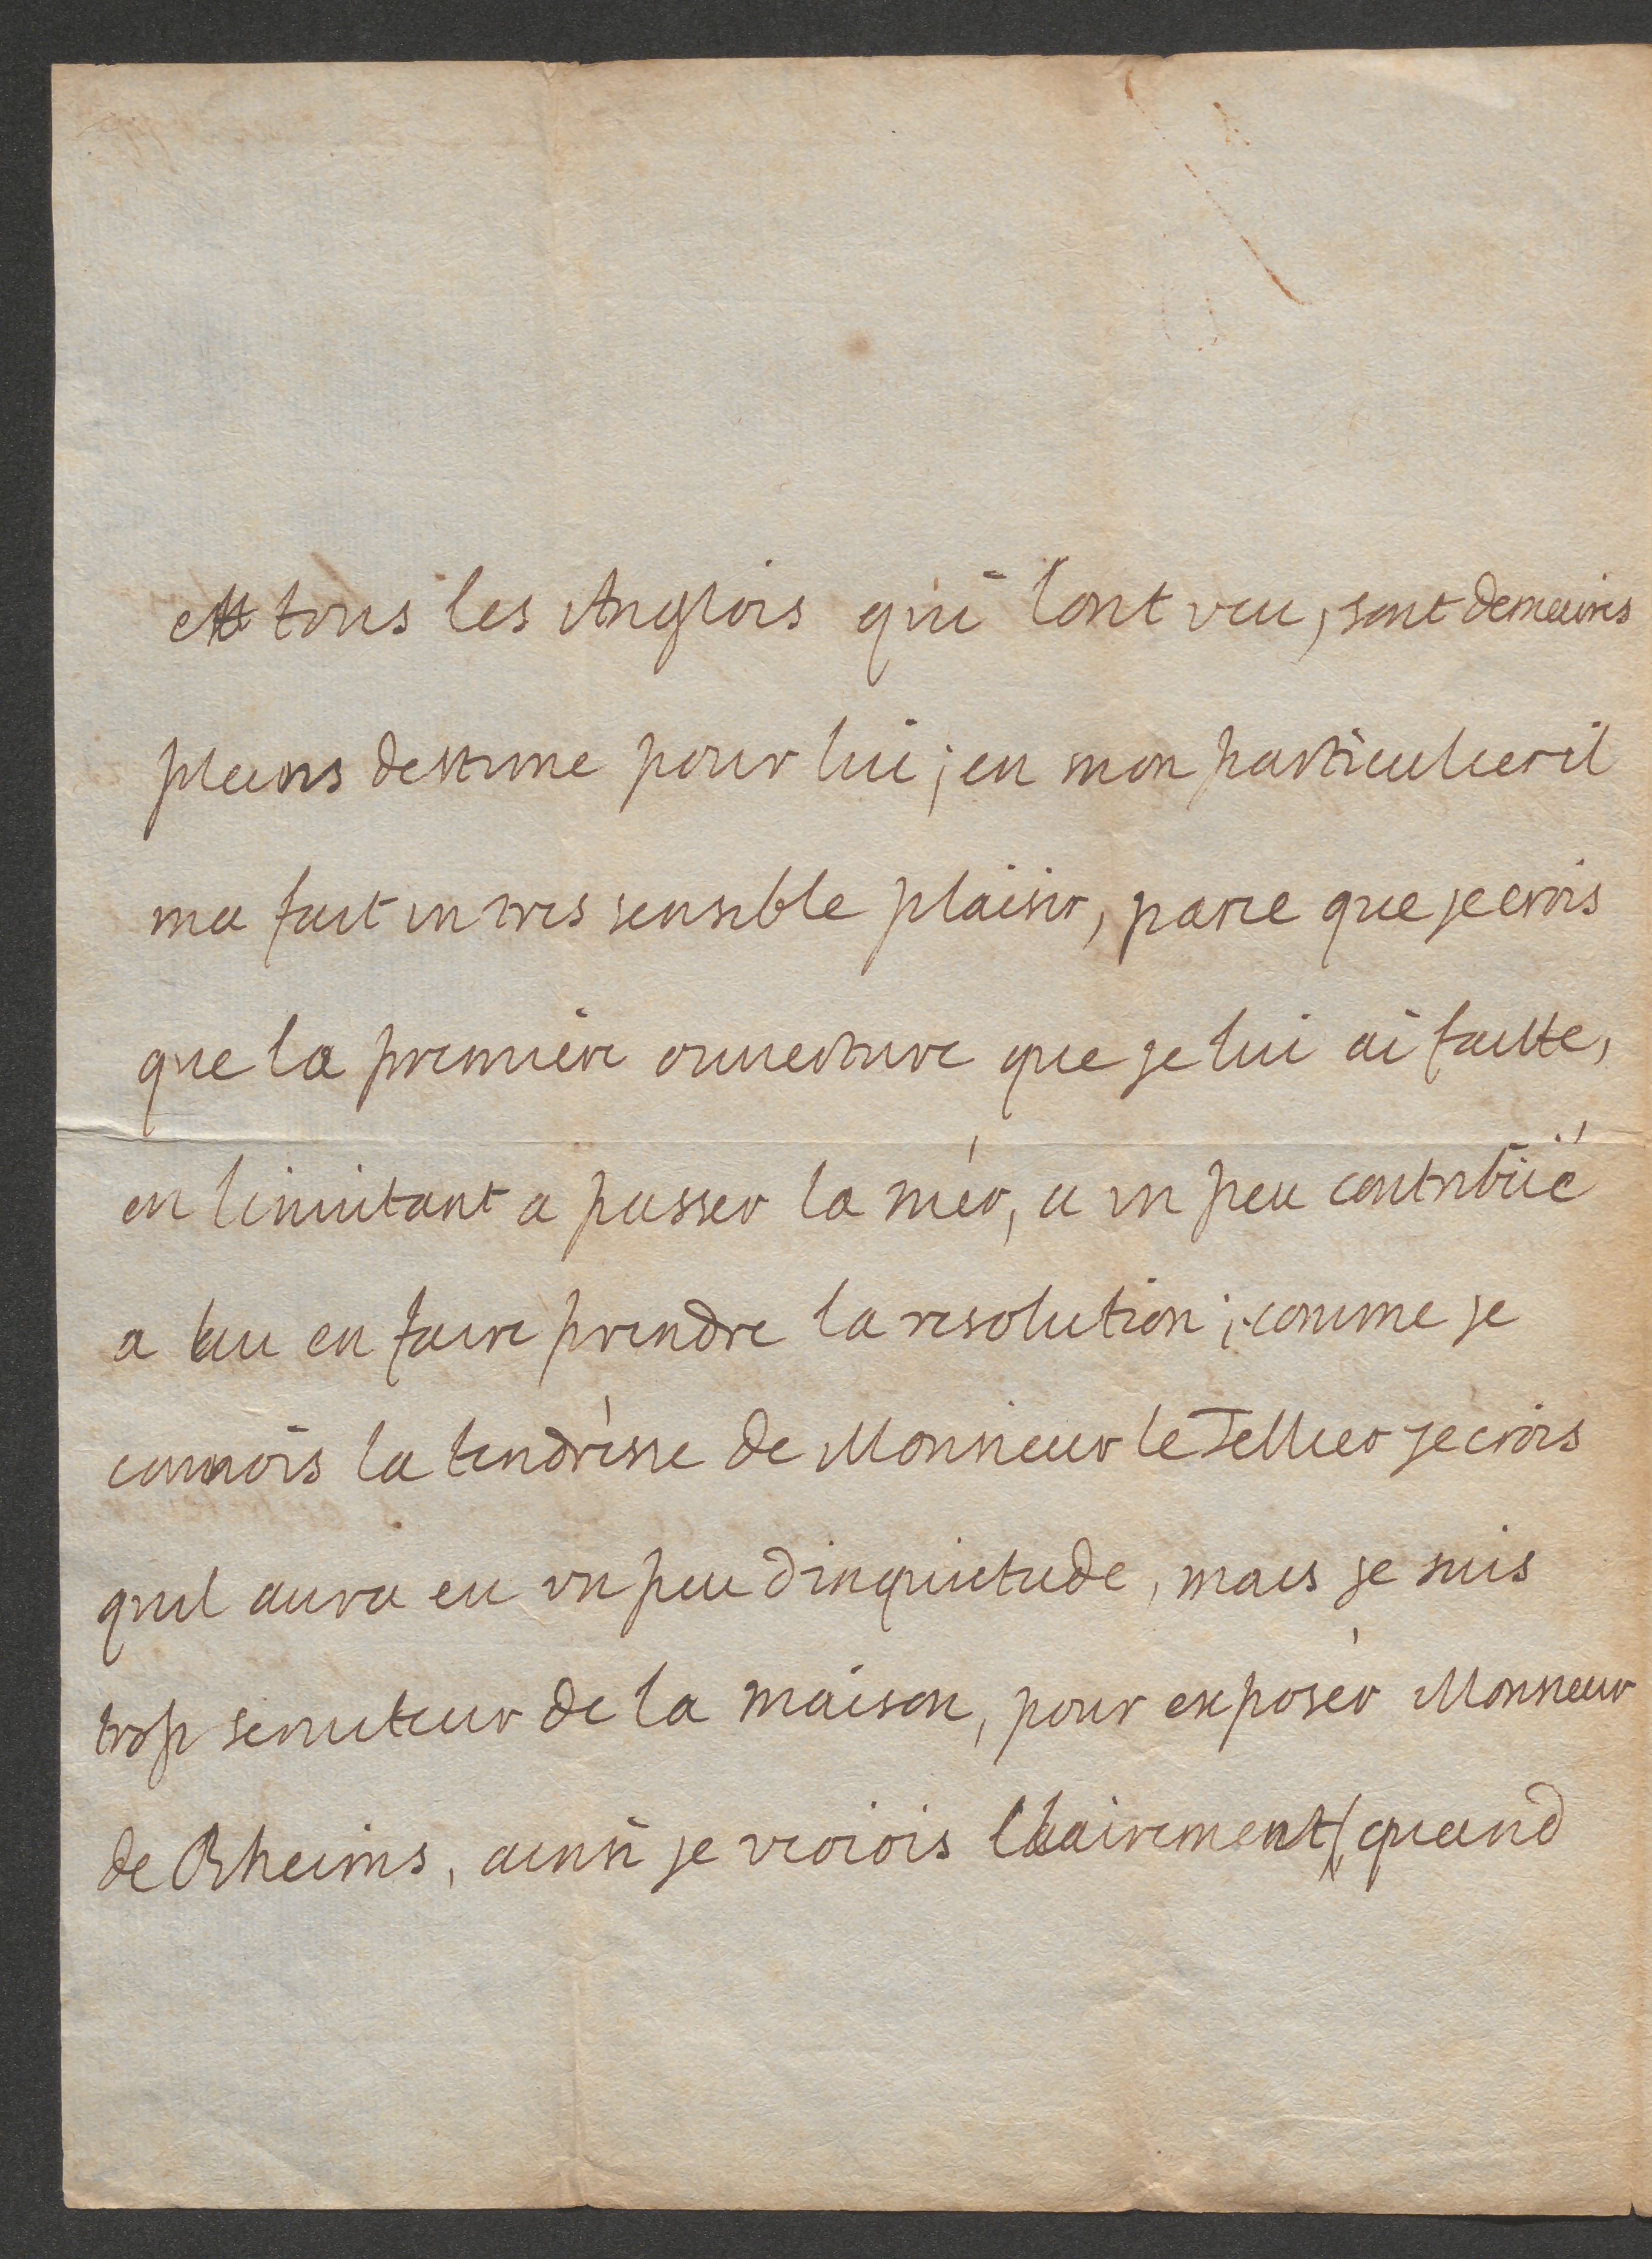 ett tous les Anglois qui lont veu, sont demeures
pleins destime pour lui; en mon particulier il
ma fait un tres sensible plaisir, parce que je crois
que la premiere ouuerture que je lui ai faitte,
en linuitant a passer la mér, a vn peu contribüé
a lui en faire prendre la resolution; comme je
connois la tendrésse de Monsieur le Tellier je crois
quil aura eu vn peu dinquietude, mais je suis
trop seruiteur de la maison, pour exposér Monsieur
de Rheims, ainsi je veoiois clairement, quand